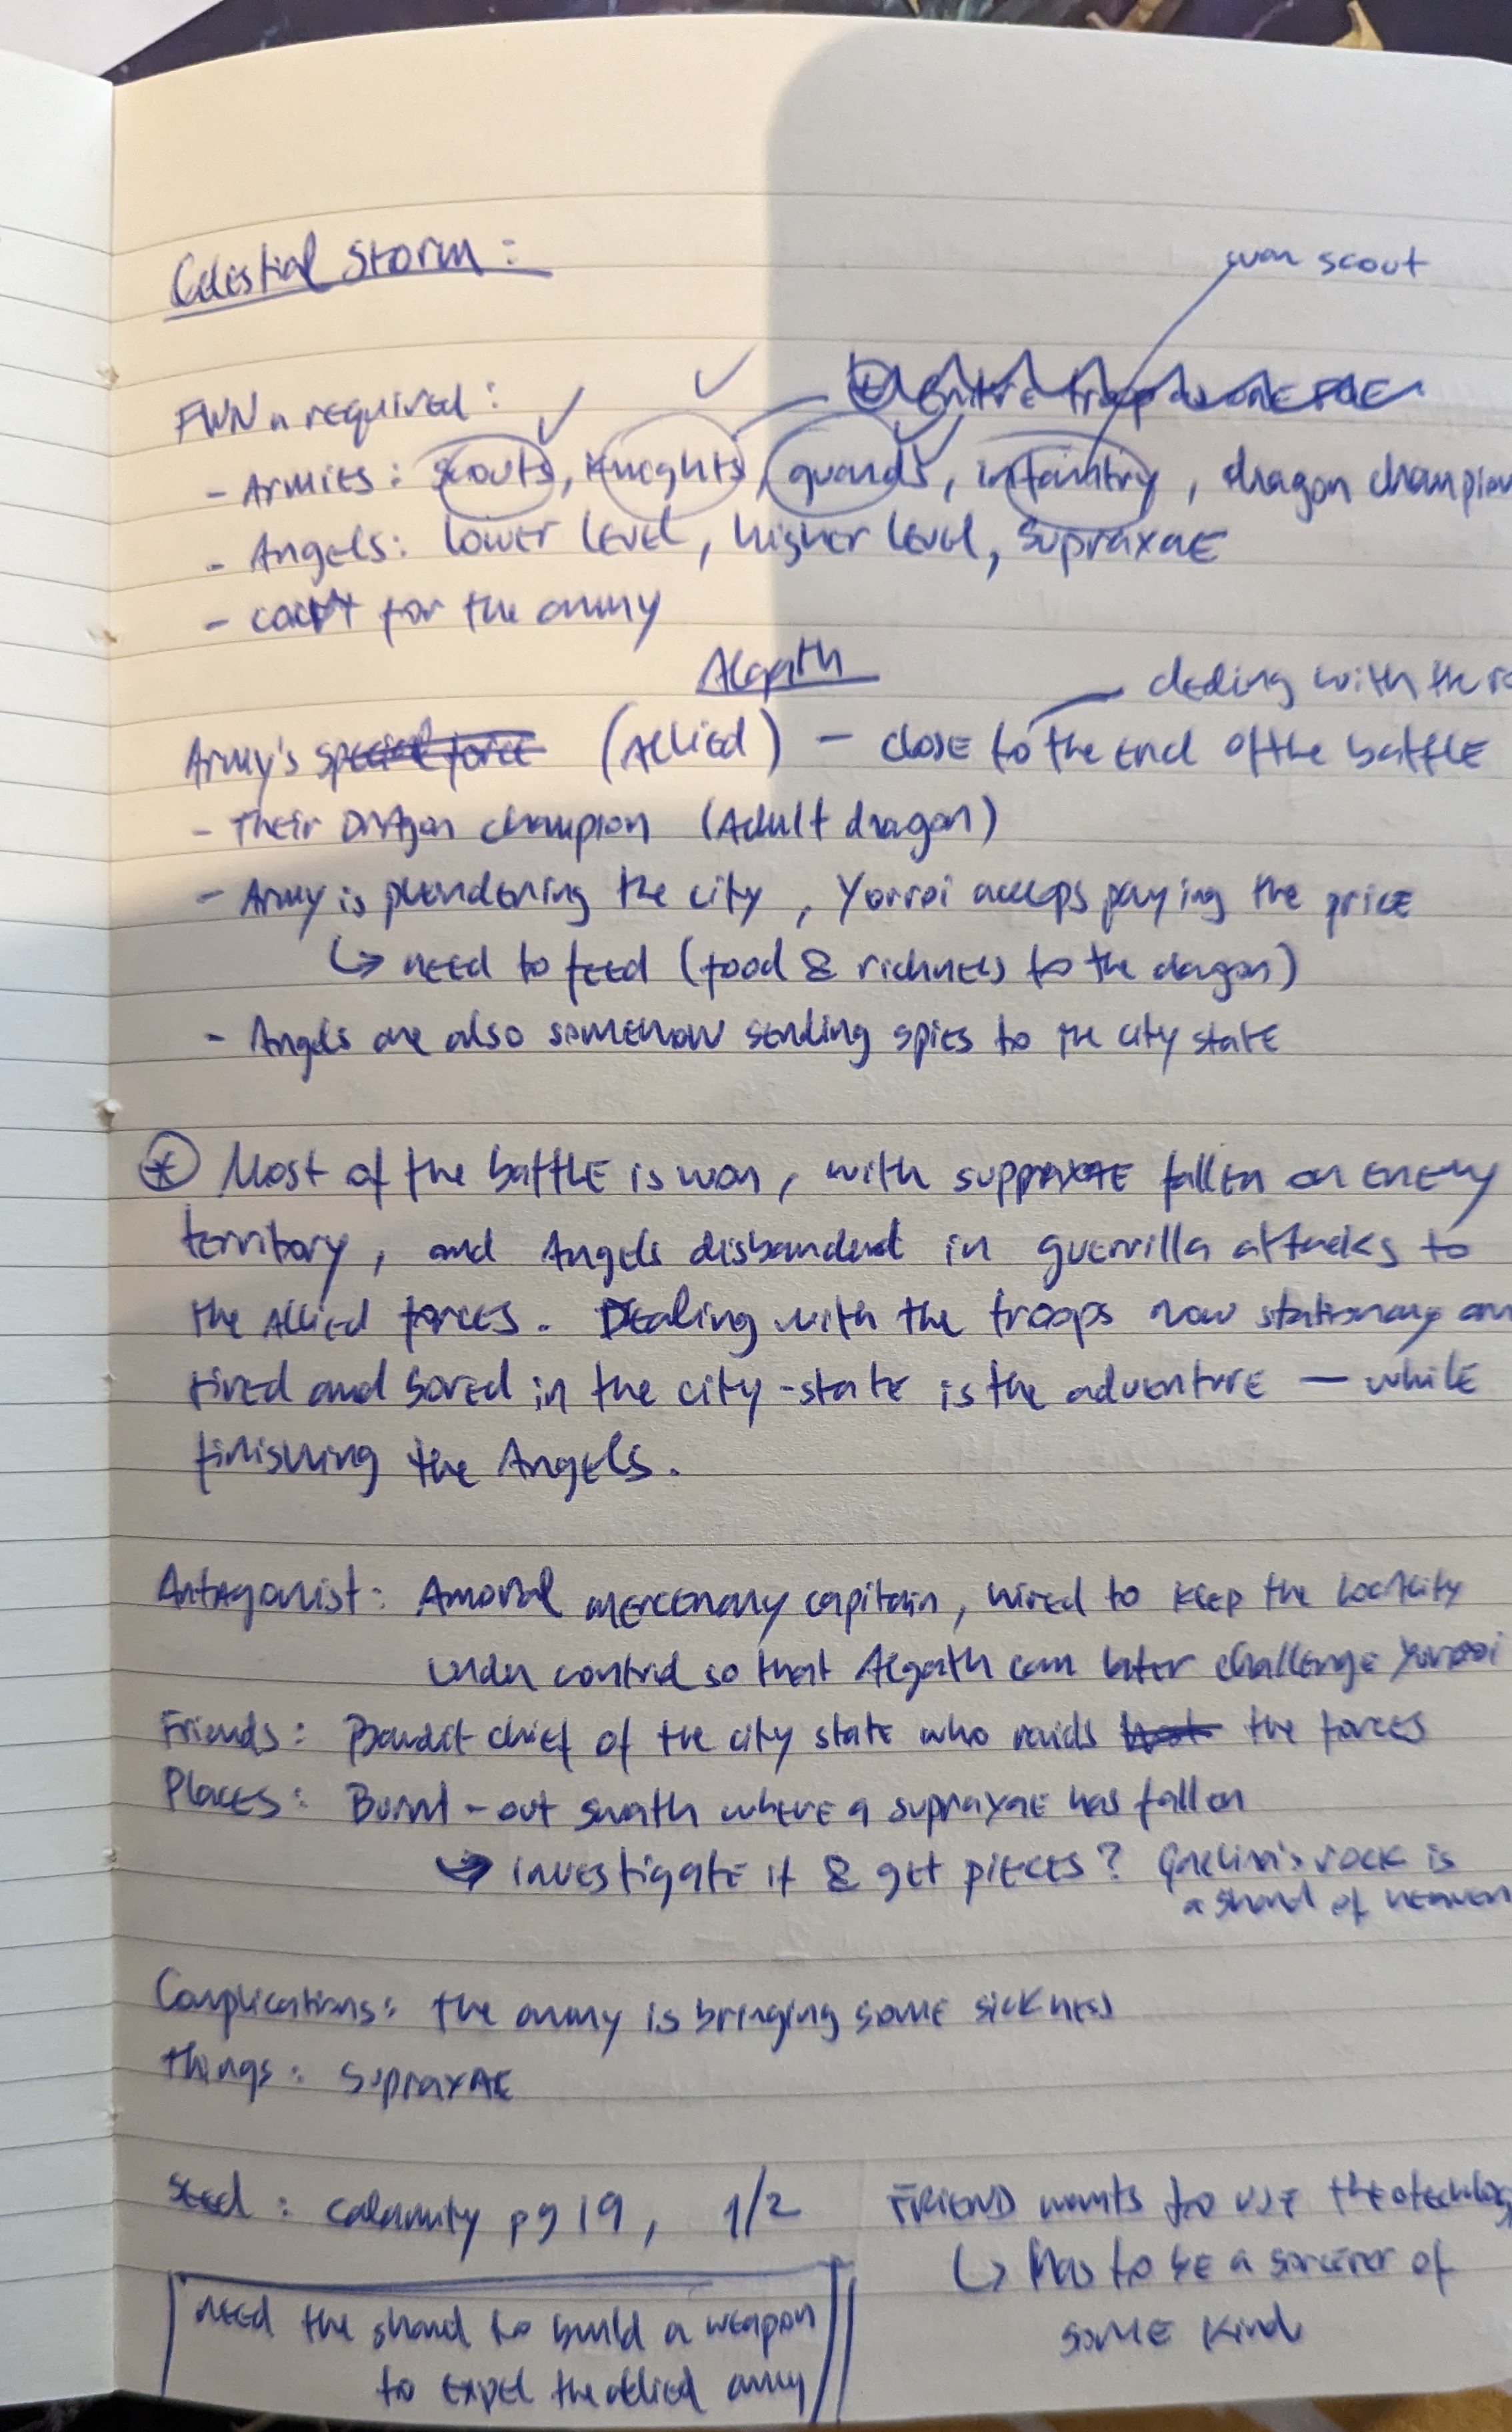 Celestial Storm:
war scout
FWN a required:
- Armies: scouts, knights, guards, infantry, dragon champion
- Angels: lower level, higher level, Supraxae
- for the army
Algath
dealing with the
Army's special force (Allied) — close to the end of the battle
- Their Dragon champion (Adult dragon)
- Army is plundering the city, Yorroi paying the price
↳ need to feed (food & richness to the dragon)
- Angels are also somehow sending spies to the city state
⊛ Most of the battle is won, with suppraxae fallen on enemy
territory, and Angels disbanded in guerrilla attacks to
the Allied forces. Dealing with the troops now stationary
tired and bored in the city-state is the adventure — while
finishing the Angels.
Antagonist: Amoral mercenary capitain, hired to keep the locality
under control so that Algath can later challenge Yorroi
Friends: Bandit chief of the city state who raids the forces
Places: Burnt-out swath where a supraxae has fallen
↳ investigate it & get pieces? rock is
a shard of heaven
Complications: the army is bringing some sickness
Things: Supraxae
Seed: calamity pg 19, 1/2
Friend wants to use the
↳ Has to be a sorcerer of
some kind
need the shard to build a weapon
to expel the allied army